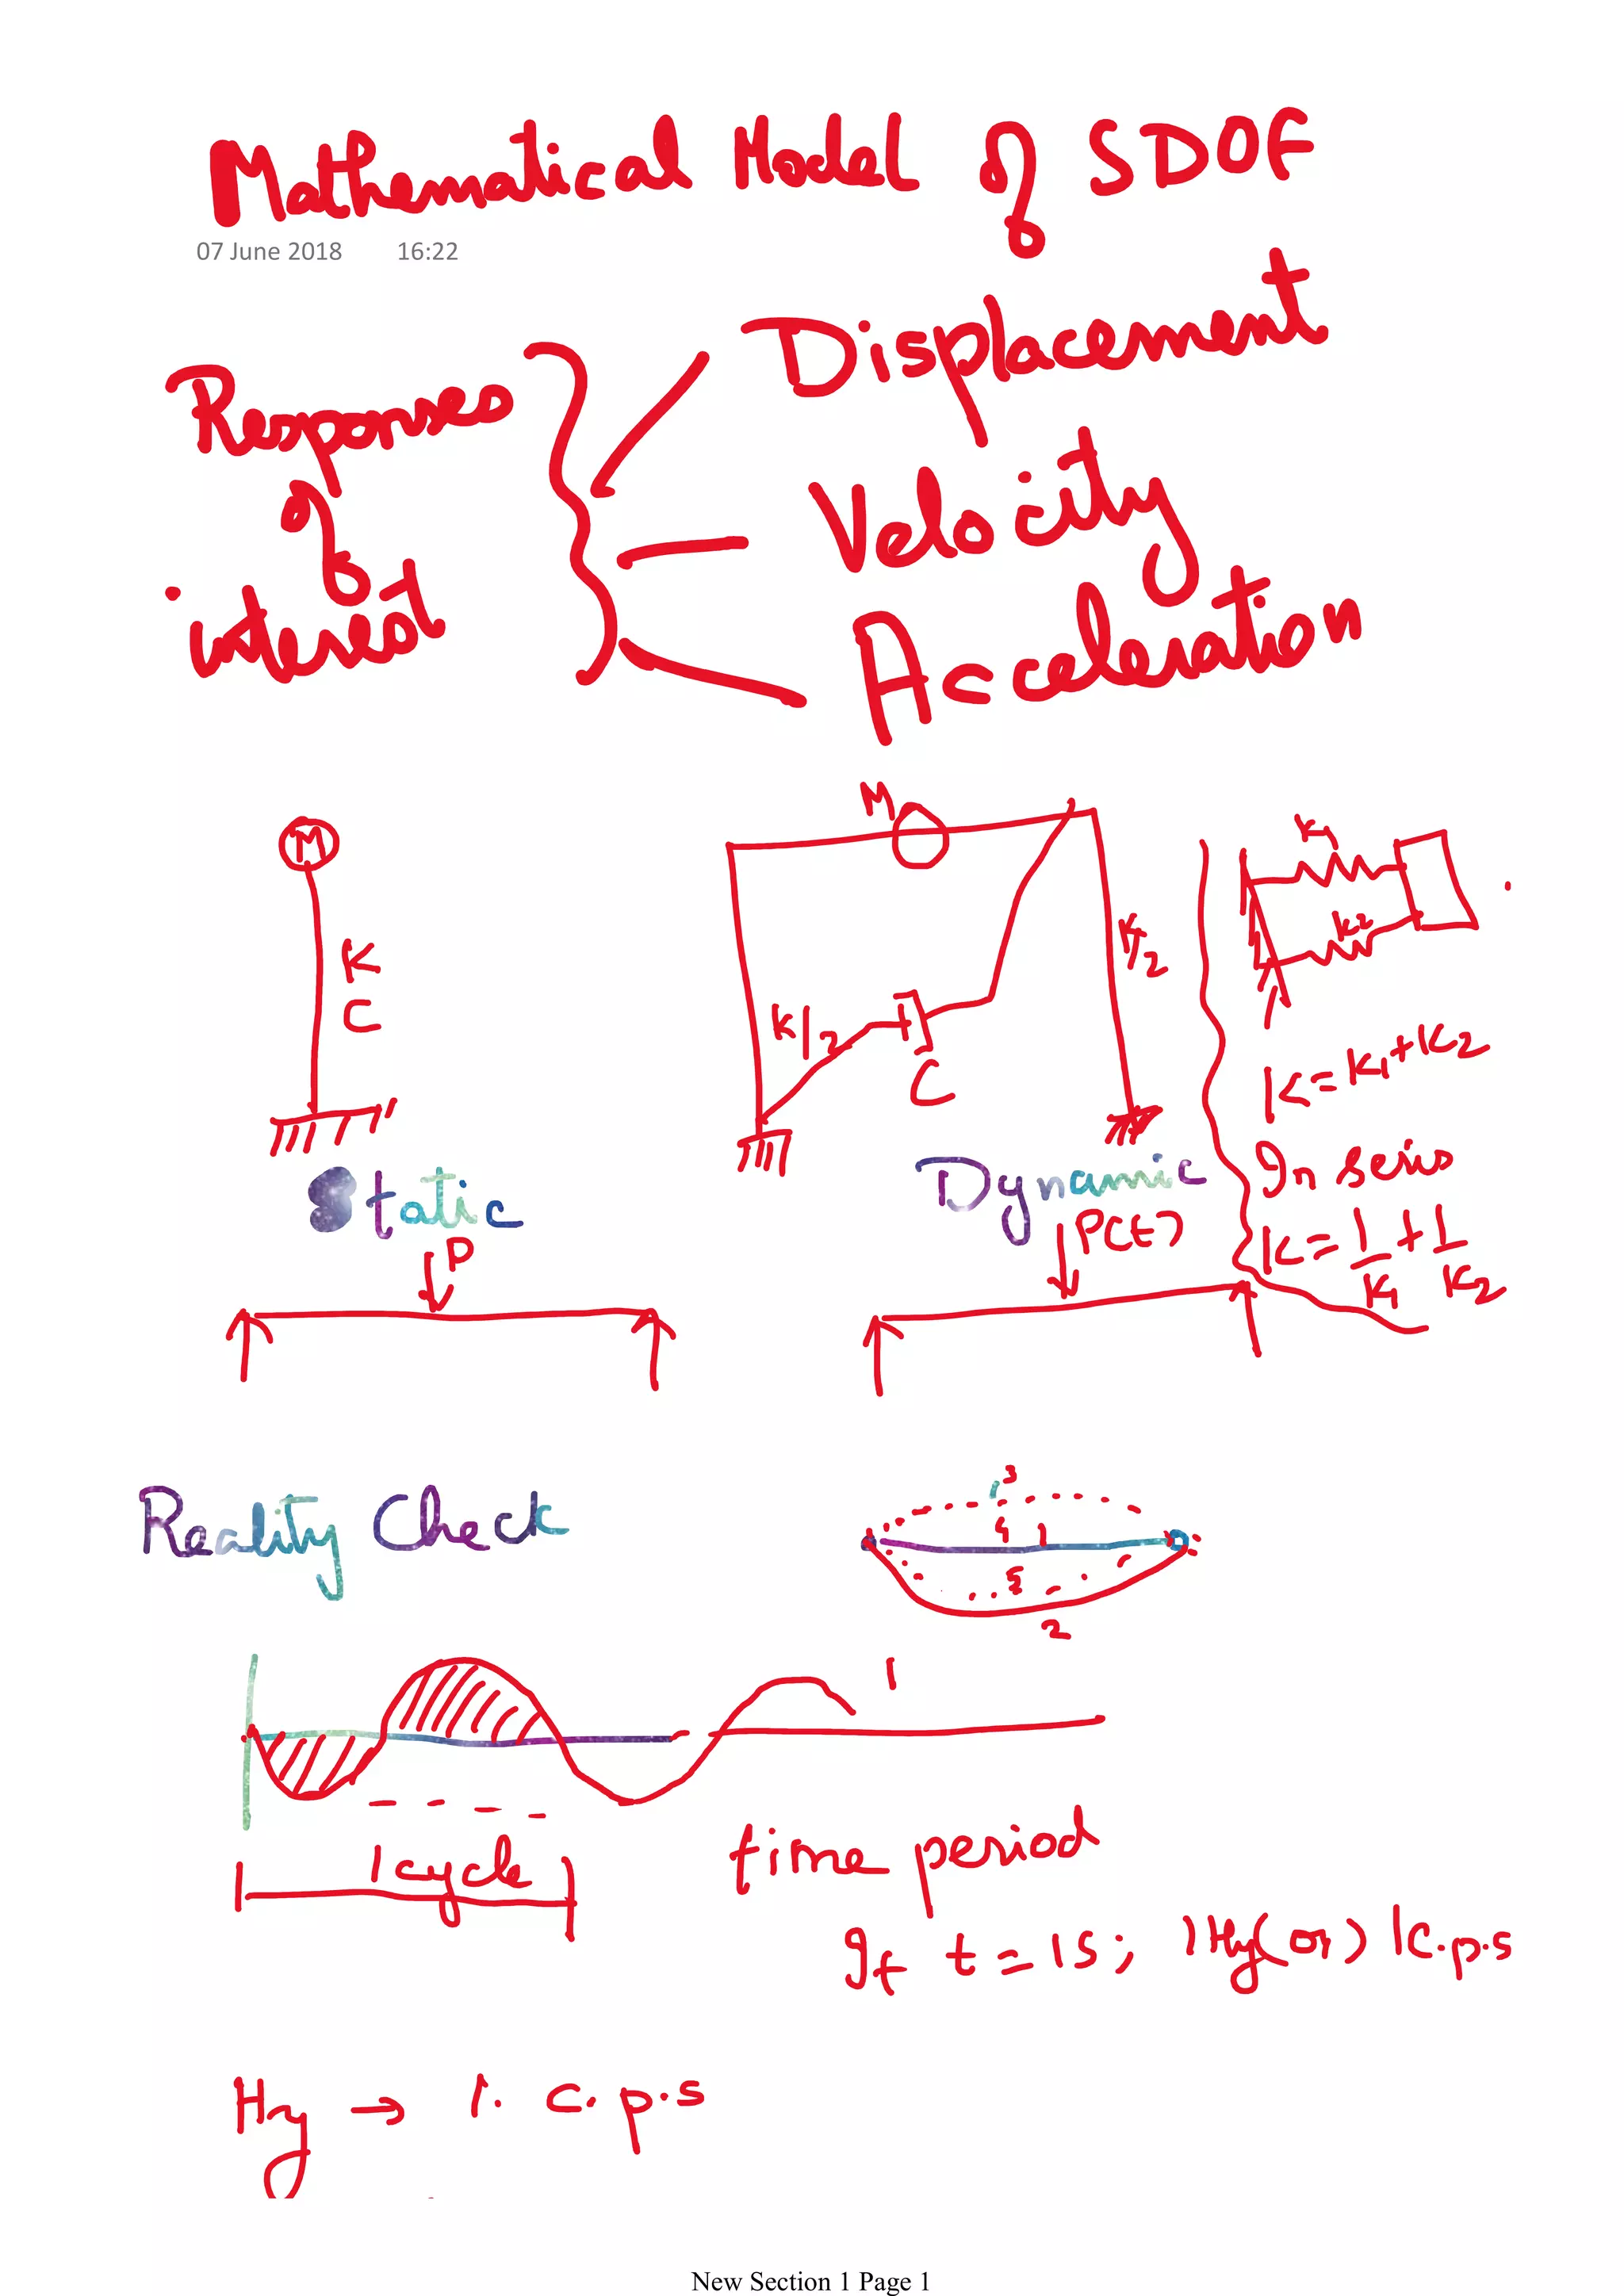 Mathematical Model of SDOF
07 June 2018 16:22
Responses of interest
Displacement
Velocity
Acceleration
M
K
C
M
K/2
C
K/2
K1
K2
K=K1+K2
In series
K=1/K1+1/K2
Static
P
Dynamic
P(t)
Reality Check
3
4 1
5
2
1
1 cycle
time period
If t = 1S; 1Hz(or) 1C.p.s
Hz → 1. C.p.s
New Section 1 Page 1